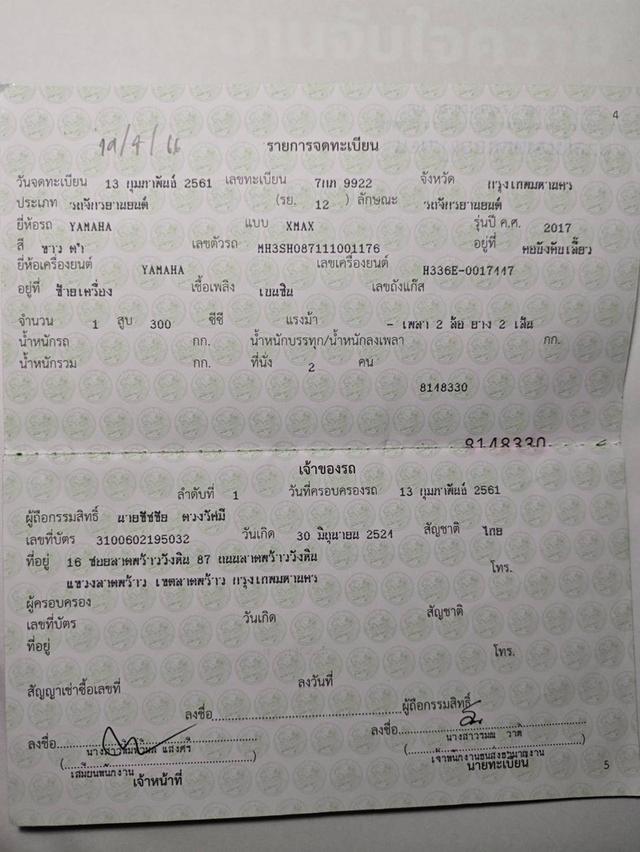 4
19/4/66
รายการจดทะเบียน
วันจดทะเบียน 13 กุมภาพันธ์ 2561 เลขทะเบียน 7กภ 9922 จังหวัด กรุงเทพมหานคร
ประเภท รถจักรยานยนต์ (รย. 12 ) ลักษณะ รถจักรยานยนต์
ยี่ห้อรถ YAMAHA แบบ XMAX รุ่นปี ค.ศ. 2017
สี ขาว ดำ เลขตัวรถ MH3SH087111001176 อยู่ที่ คอบังคับเลี้ยว
ยี่ห้อเครื่องยนต์ YAMAHA เลขเครื่องยนต์ H336E-0017447
อยู่ที่ ซ้ายเครื่อง เชื้อเพลิง เบนซิน เลขถังแก๊ส
จำนวน 1 สูบ 300 ซีซี แรงม้า - เพลา 2 ล้อ ยาง 2 เส้น
น้ำหนักรถ กก. น้ำหนักบรรทุก/น้ำหนักลงเพลา กก.
น้ำหนักรวม กก. ที่นั่ง 2 คน
8148330
8148330
เจ้าของรถ
ลำดับที่ 1 วันที่ครอบครองรถ 13 กุมภาพันธ์ 2561
ผู้ถือกรรมสิทธิ์ นายชัชชัย ดวงรัศมี
เลขที่บัตร 3100602195032 วันเกิด 30 มิถุนายน 2524 สัญชาติ ไทย
ที่อยู่ 16 ซอยลาดพร้าววังหิน 87 ถนนลาดพร้าววังหิน
แขวงลาดพร้าว เขตลาดพร้าว กรุงเทพมหานคร โทร.
ผู้ครอบครอง
เลขที่บัตร วันเกิด สัญชาติ
ที่อยู่ โทร.
สัญญาเช่าซื้อเลขที่ ลงวันที่
ลงชื่อ ผู้ถือกรรมสิทธิ์
ลงชื่อ ลงชื่อ
แสงศรี วาดี
เสมียนพนักงาน เจ้าพนักงานขนส่งชำนาญงาน
เจ้าหน้าที่ นายทะเบียน
5